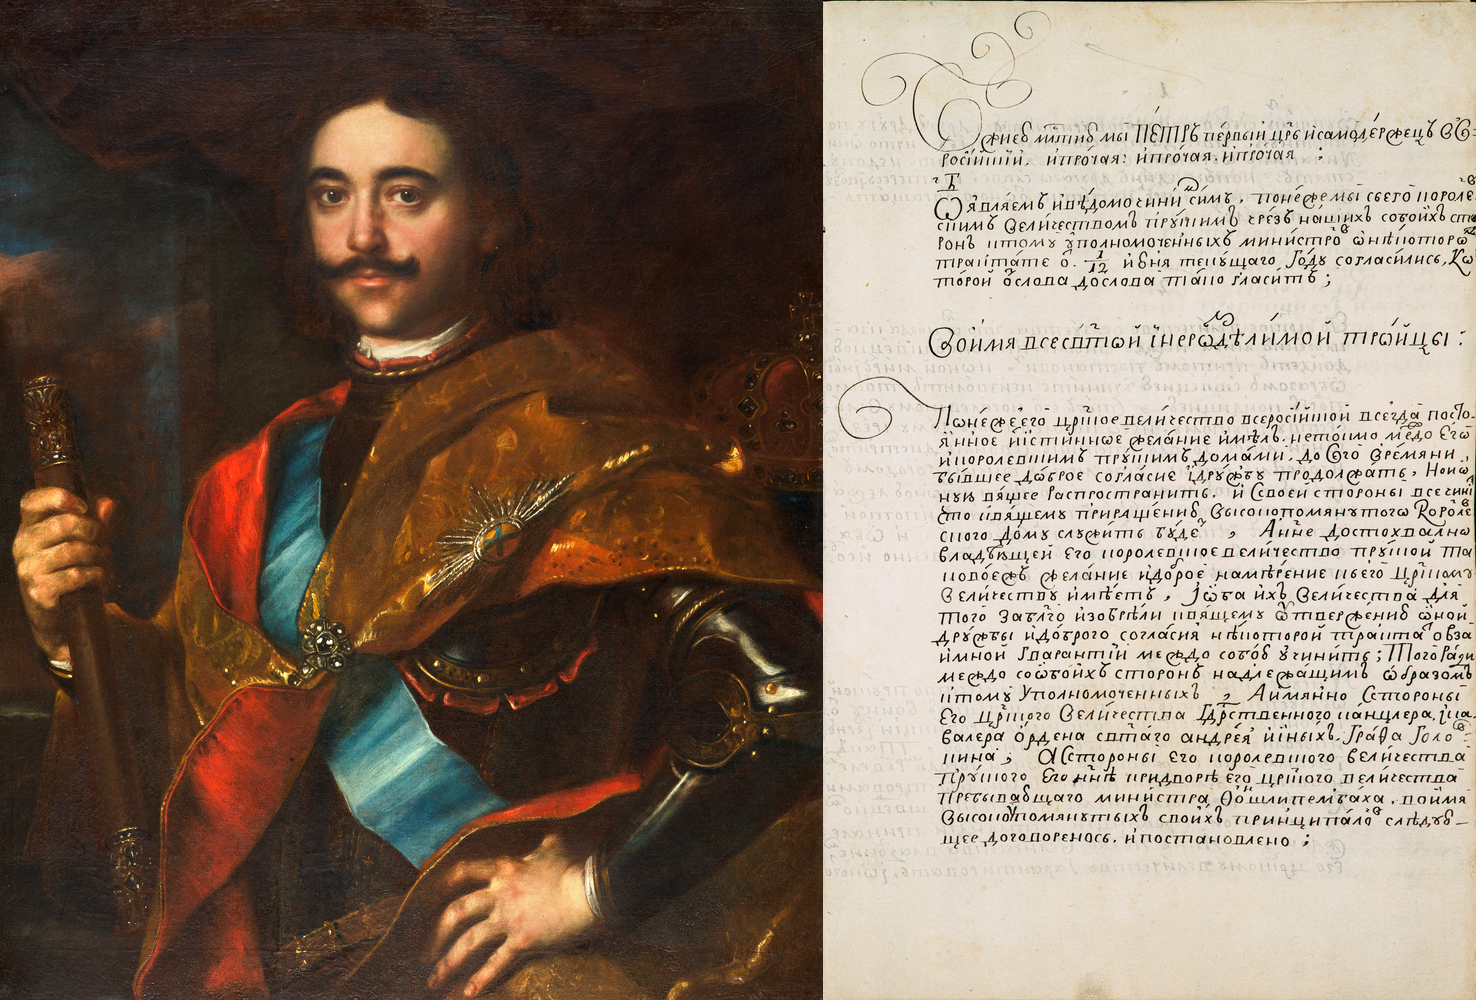 Бжиею млтию мы ПЕТРЪ первый црь исамодержецъ всо=
росiйкий, ипрочая: ипрочая. ипрочая ;
Ѡ являемъ ивѣдомо чини симъ, понеже мы сʼего короле
скимъ величествомъ прускимъ чрезъ нашихъ обоихъ сто
ронъ ктому уполномоченныхъ министро в нѣкоторо
трактате о. 1/12 июня текущаго году согласились, ко
торой ѿслова дослова тако гласитъ ;
Воимя всесвтой iнероздѣлимой тройцы :
Понеже его црское величество всеросiйской всегда посто
янное иистинное желание имѣлъ. нетокмо междо его
икоролевскимъ прускимъ домами, досего времяни
бывшее доброе согласие iдружбу продолжать, ноио
ную вящее распространить. и ссвоей стороны все чини
что квящему приращению высокопомянутого короле
ского дому служить буде , Аи нне достохвално
владѣющей его королевское величество пруской та
кое жъ желание идоброе намѣрение кего црскому
величеству имѣетъ, iоба ихъ величества для
того заблго изобрѣли квящему ѿтвержению оной
дружбы идоброго согласия нѣкоторой тракта обза
имной гварантии междо собою учинить ; Того ради
междо собоихъ сторонъ надлежащимъ образомъ
ктому уполномоченныхъ , Аимянно сстороны
Его црского величества гдрственного канцлера, ика
валера ордена свтаго андрея ииныхъ. графа голо
кина ; Асстороны его королевского величества
пруского его ннѣ придворѣ его црского величества
пребывающаго министра фошлипембаха, воимя
высокопомянутыхъ своихъ принципало слѣдую—
щее договоренось. ипостановлено ;